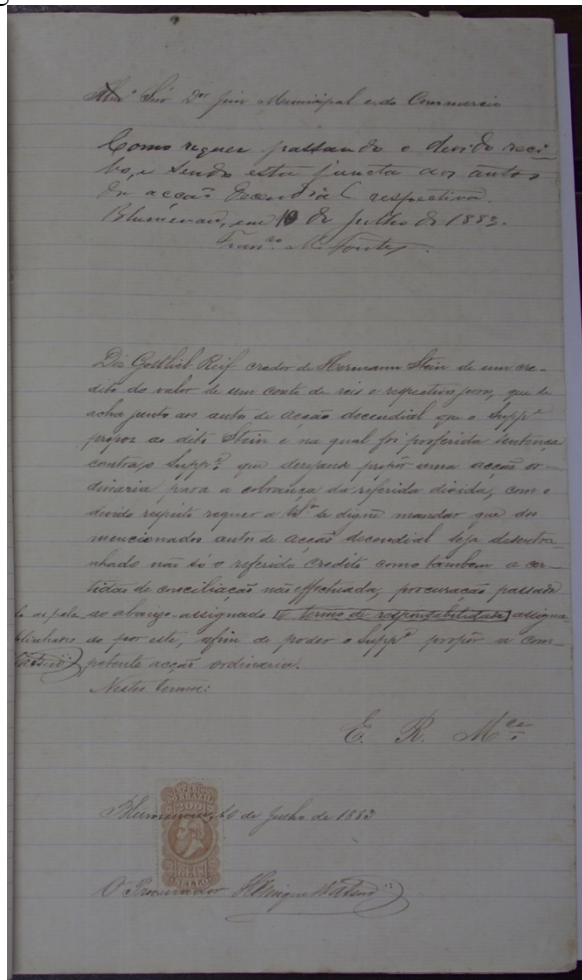 Illmo Snr Dor Juiz Municipal e do Commercio
Como requer passando o devido reci-
bo, e sendo esta juncta aos autos
de acção decendial respectiva.
Blumenau, em 10 de Julho de 1883.
Franco
Diz Gottlieb Reif credor de Hermann Stein de um cre-
dito do valor de um conto de reis e respectivos juros, que se
acha junto aos autos de acção decendial que o Suppe
propoz ao dito Stein e na qual foi proferida sentença
contra o Suppe que desejando propôr uma acção or-
dinaria para a cobrança da referida divida, com o
divido respeito requer a Va se digne mandar que dos
mencionados autos de acção decendial seja desentra-
nhado não só o referido credito como tambem a cer-
tidão de conciliação não effectuada, procuração passada
ao abaixo-assignado o termo de responsabilidade assigna-
do por este, afim de poder o Suppe propôr a com-
petente acção ordinaria.
Nestes termos:
E. R. Mce
200
Blumenau, 10 de Julho de 1883
O Procurador Henrique